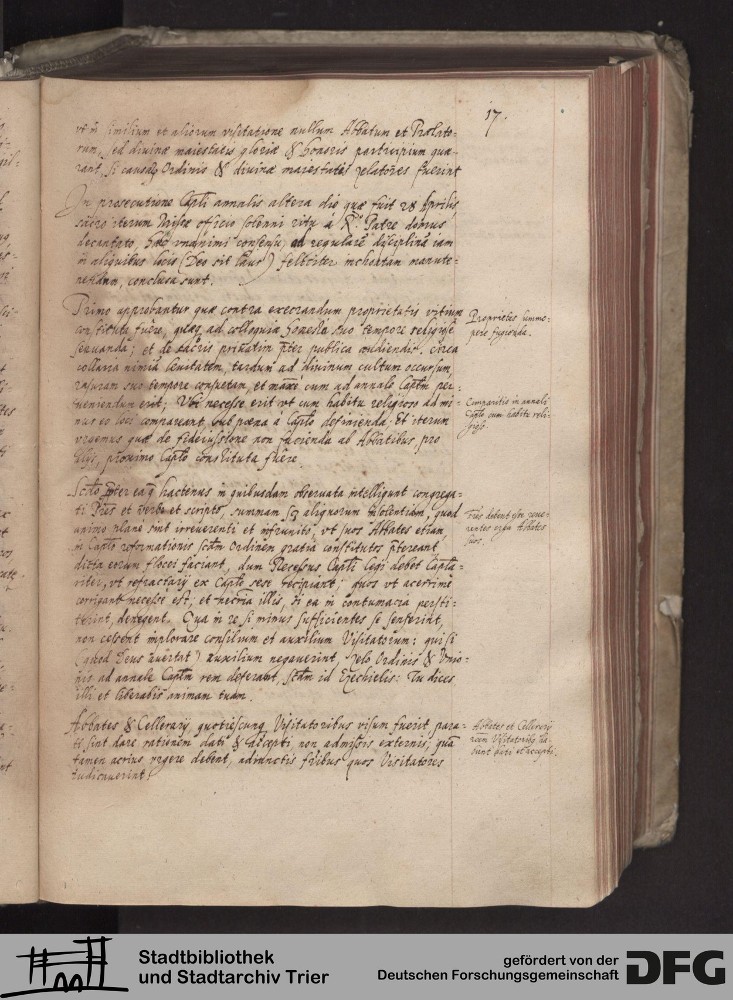 17.
vt in similium et aliorum visitatione nullum Abbatum et Prælato-
rum, sed divinæ maiestatis gloriæ & honoris participium quæ-
rant, si causæ Ordinis & divinæ maiestatis zelatores fuerint
In prosecutione Capli annalis altera die quæ fuit 28 Aprilis
sacro iterum Missæ officio solenni ritu á R.do Patre domus
decantato, hæc vnanimi consensu, ad regularē disciplinā iam
in aliquibus locis (Deo sit laus) feliciter inchoatam manute-
nendam, conclusa sunt.
Primo approbantur quæ contra execrandum proprietatis vitium
constituta fuere, quæq, ad colloquia honesta suo tempore religiose
seruanda; et de sacris priuatim pter publica audiendis, circa
collaria nimia leuitatem, tardum ad diuinum cultum occursum,
rasuram suo tempore consuetam, et maxē cum ad annale Captm per-
ueniendum erit; Vbi necesse erit vt cum habitu religioso ad mi-
nus eo loci compareant, sub pœna á Caplo definienda; Et iterum
vrgemus quæ de fideiussione non facienda ab Abbatibus pro
alijs, proximo Caplo constituta fuēre.
Scdo pter ea q hactenus in quibusdam obseruata intelligunt congrega-
ti Pres et verbi et scripto, summam aliquorum violentiam, quod
animo plane sint irreuerenti et infrunito, vt suos Abbates etiam
in Caplo reformationis scdm Ordinem gratia constitutos ptereant
dicta eorum flocci faciant, dum Recessus Capti legi debet Capla-
riter, vt refractarij ex Caplo sese recipiant; quos vt acerrime
corrigant necesse est, et necria illis, si ea in contumacia persti-
terint, denegent. Qua in re si minus sufficientes se senserint,
non cessent implorare consilium et auxilium Visitatorum: qui si
(quod Deus auertat) auxilium negauerint, zelo Ordinis & Vnio-
nis ad annale Captm rem deferant, scdm id Ezechielis: Tu dices
illi et liberabis animam tuam.
Abbates & Cellerarij, quotiescunq Visitatoribus visum fuerit para-
ti sint dare rationem dati & accepti non admissis externis, quā
tamen acrius vrgere debent, adiunctis fribus quos Visitatores
iudicauerint.
Proprietas summo-
pere fugienda.
Comparitio in annali
Caplo cum habitu reli-
gioso.
Fres debent esse reue-
rentes erga Abbates
suos.
Abbates et Cellerarij
rōem Visitatoribus da-
bunt dati et accepti.
Stadtbibliothek
und Stadtarchiv Trier
gefördert von der
Deutschen Forschungsgemeinschaft
DFG